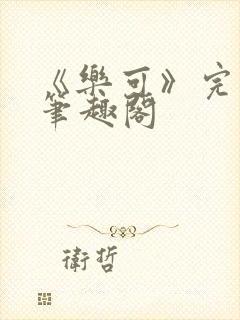 《樂可》完
筆趣閣
衛哲